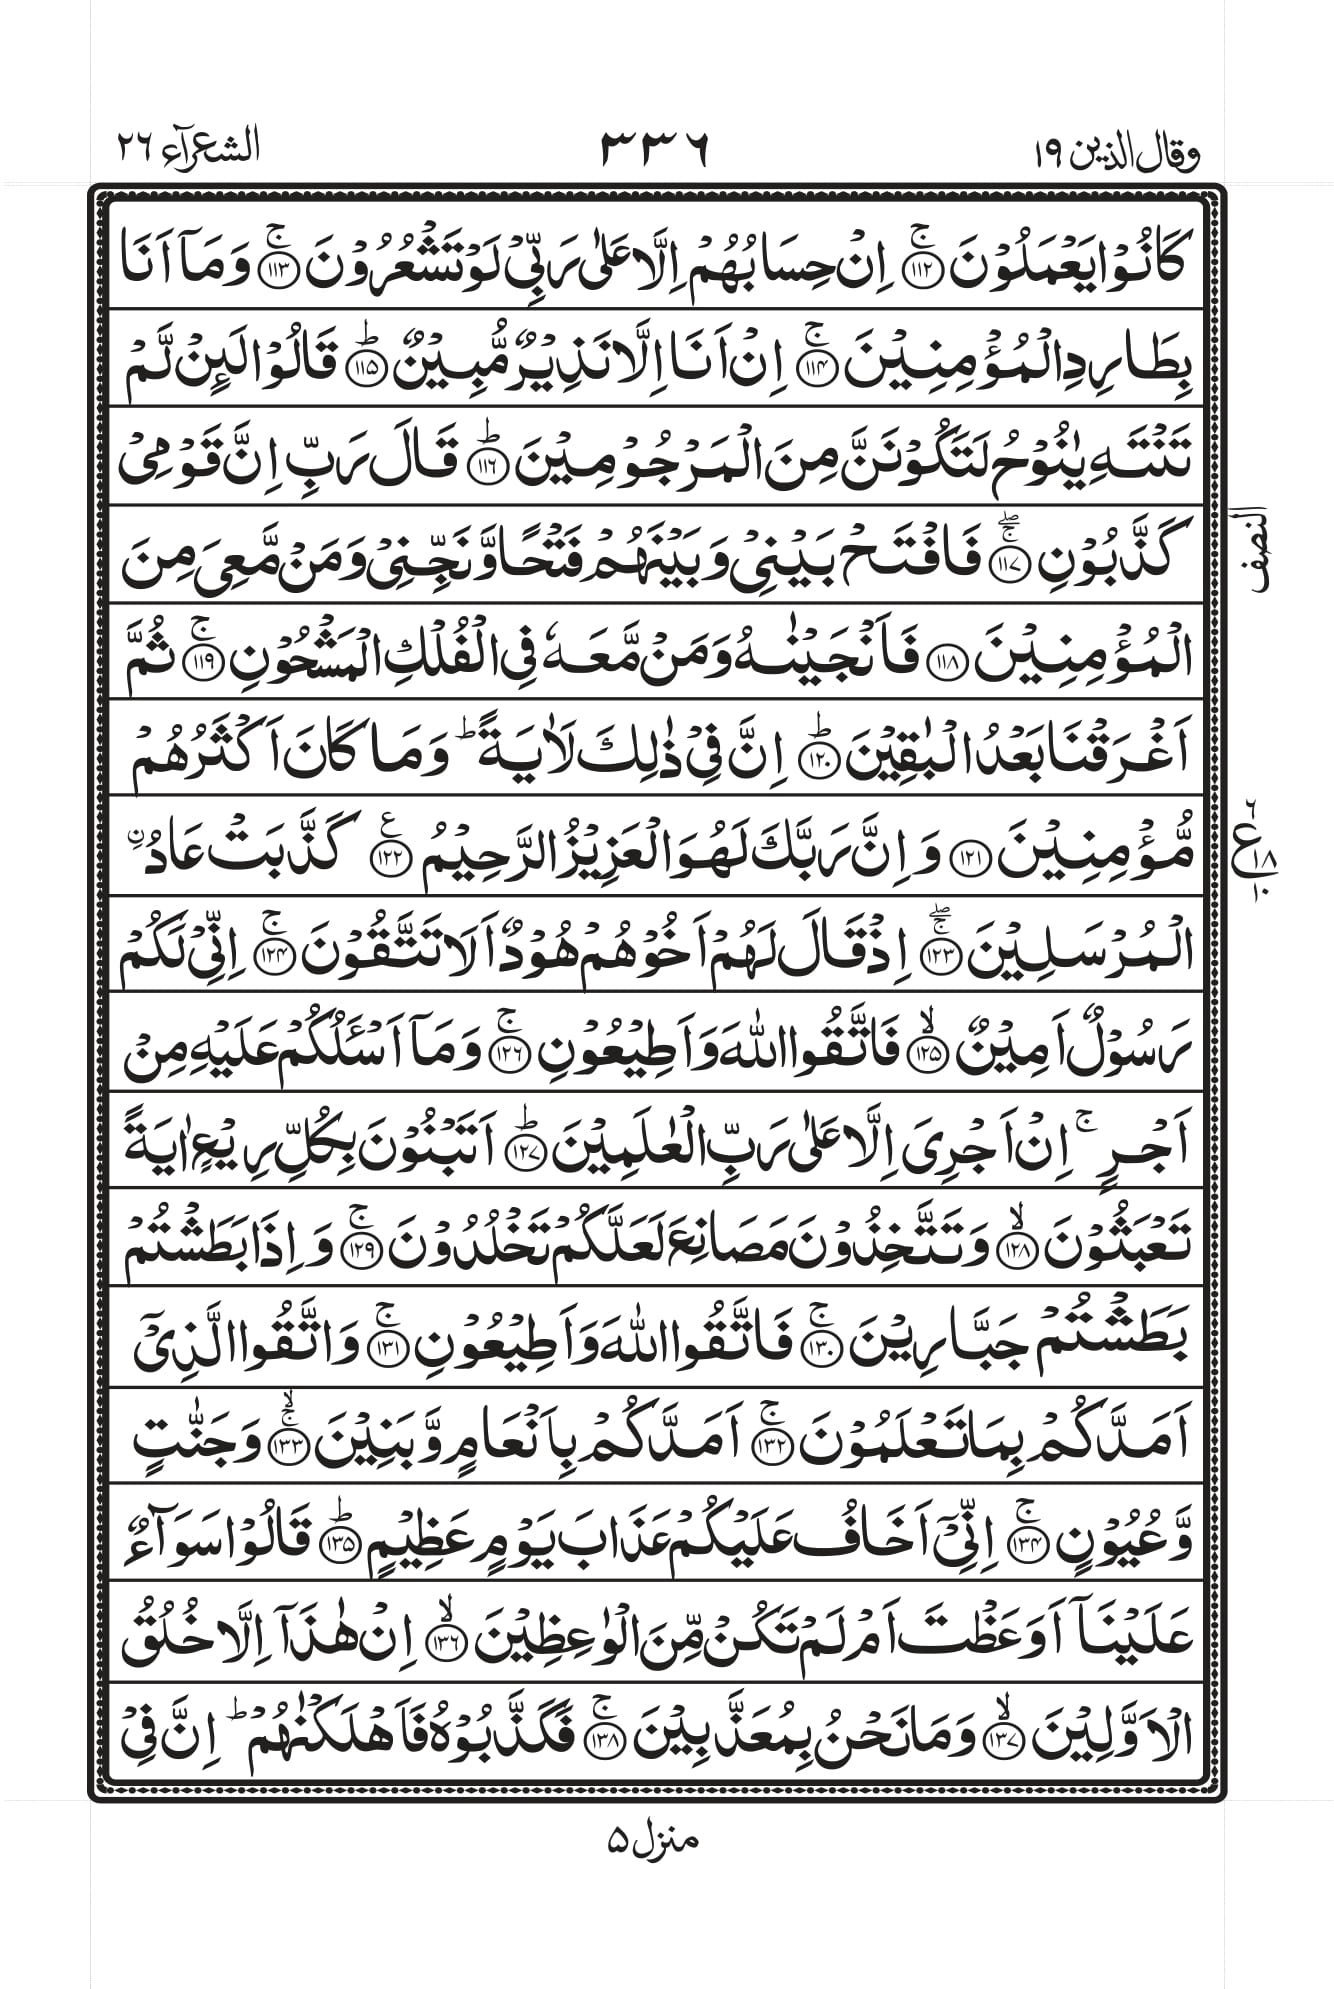 وقال الذين ١٩ ٣٣٦ الشعرآء ٢٦
كَانُوۡا يَعۡمَلُوۡنَ ۚ‏﴿۱۱۲﴾ اِنۡ حِسَابُهُمۡ اِلَّا عَلٰى رَبِّىۡ لَوۡ تَشۡعُرُوۡنَ ۚ‏﴿۱۱۳﴾ وَمَاۤ اَنَا
بِطَارِدِ الۡمُؤۡمِنِيۡنَ ۚ‏﴿۱۱۴﴾ اِنۡ اَنَا اِلَّا نَذِيۡرٌ مُّبِيۡنٌ ؕ‏﴿۱۱۵﴾ قَالُوۡا لَـئِنۡ لَّمۡ
تَنۡتَهِ يٰنُوۡحُ لَـتَكُوۡنَنَّ مِنَ الۡمَرۡجُوۡمِيۡنَ ؕ‏﴿۱۱۶﴾ قَالَ رَبِّ اِنَّ قَوۡمِىۡ
كَذَّبُوۡنِ ‌ۖ‌ۚ‏﴿۱۱۷﴾ فَافۡتَحۡ بَيۡنِىۡ وَبَيۡنَهُمۡ فَتۡحًا وَّنَجِّنِىۡ وَمَنۡ مَّعِىَ مِنَ
الۡمُؤۡمِنِيۡنَ‏ ﴿۱۱۸﴾ فَاَنۡجَيۡنٰهُ وَمَنۡ مَّعَهٗ فِى الۡـفُلۡكِ الۡمَشۡحُوۡنِ‌ۚ‏﴿۱۱۹﴾ ثُمَّ
اَغۡرَقۡنَا بَعۡدُ الۡبٰقِيۡنَؕ‏﴿۱۲۰﴾ اِنَّ فِىۡ ذٰ لِكَ لَاٰيَةً‌ ؕ وَمَا كَانَ اَكۡثَرُهُمۡ
مُّؤۡمِنِيۡنَ‏ ﴿۱۲۱﴾ وَاِنَّ رَبَّكَ لَهُوَ الۡعَزِيۡزُ الرَّحِيۡمُ ﴿۱۲۲﴾ع كَذَّبَتۡ عَادُ ۨ
الۡمُرۡسَلِيۡنَ ‌ۖ‌ۚ‏﴿۱۲۳﴾ اِذۡ قَالَ لَهُمۡ اَخُوۡهُمۡ هُوۡدٌ اَلَا تَتَّقُوۡنَ‌ۚ‏﴿۱۲۴﴾ اِنِّىۡ لَـكُمۡ
رَسُوۡلٌ اَمِيۡنٌۙ‏﴿۱۲۵﴾ فَاتَّقُوا اللّٰهَ وَاَطِيۡعُوۡنِ‌ۚ‏﴿۱۲۶﴾ وَمَاۤ اَسۡـئَلُكُمۡ عَلَيۡهِ مِنۡ
اَجۡرٍ‌ۚ اِنۡ اَجۡرِىَ اِلَّا عَلٰى رَبِّ الۡعٰلَمِيۡنَؕ‏﴿۱۲۷﴾ اَتَبۡنُوۡنَ بِكُلِّ رِيۡعٍ اٰيَةً
تَعۡبَثُوۡنَۙ‏﴿۱۲۸﴾ وَتَتَّخِذُوۡنَ مَصَانِعَ لَعَلَّكُمۡ تَخۡلُدُوۡنَ‌ۚ‏﴿۱۲۹﴾ وَاِذَا بَطَشۡتُمۡ
بَطَشۡتُمۡ جَبَّارِيۡنَ‌ۚ‏﴿۱۳۰﴾ فَاتَّقُوا اللّٰهَ وَاَطِيۡعُوۡنِ‌ۚ‏﴿۱۳۱﴾ وَاتَّقُوا الَّذِىۡۤ
اَمَدَّكُمۡ بِمَا تَعۡلَمُوۡنَ‌ۚ‏﴿۱۳۲﴾ اَمَدَّكُمۡ بِاَنۡعَامٍ وَّبَنِيۡنَ ۙ‌ۚ‏﴿۱۳۳﴾ وَجَنّٰتٍ
وَّعُيُوۡنٍ‌ۚ‏﴿۱۳۴﴾ اِنِّىۡۤ اَخَافُ عَلَيۡكُمۡ عَذَابَ يَوۡمٍ عَظِيۡمٍؕ‏﴿۱۳۵﴾ قَالُوۡا سَوَآءٌ
عَلَيۡنَاۤ اَوَعَظۡتَ اَمۡ لَمۡ تَكُنۡ مِّنَ الۡوٰعِظِيۡنَۙ‏﴿۱۳۶﴾ اِنۡ هٰذَاۤ اِلَّا خُلُقُ
الۡاَوَّلِيۡنَۙ‏﴿۱۳۷﴾ وَمَا نَحۡنُ بِمُعَذَّبِيۡنَ‌ۚ‏﴿۱۳۸﴾ فَكَذَّبُوۡهُ فَاَهۡلَكۡنٰهُمۡ‌ؕ اِنَّ فِىۡ
النصف
٦
ع
١٨
١٠
منزل ۵